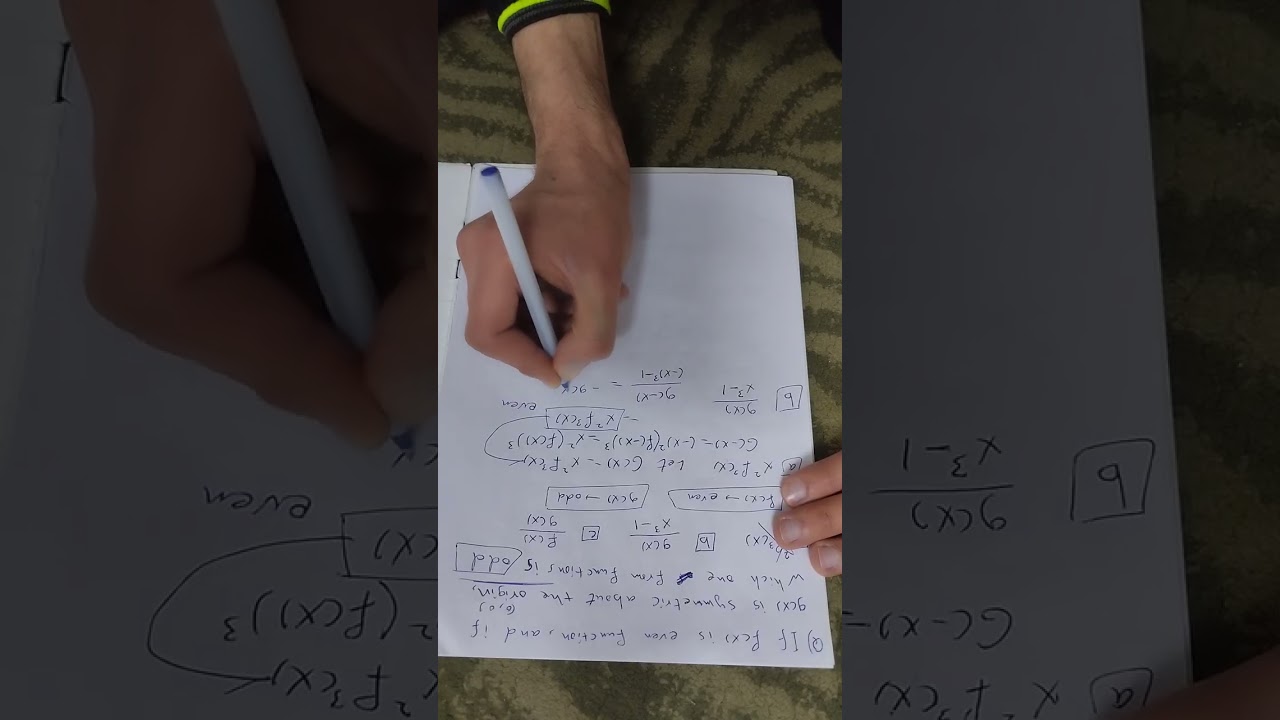 Q) If f(x) is even function, and if
g(x) is symmetric about the origin.
(0,0)
which one from functions is odd
b g(x)/x³-1 c f(x)/g(x)
f(x) → even g(x) → odd
a x² f³(x) Let G(x) = x² f³(x)
G(-x) = (-x)² (f(-x))³ = x² (f(x))³
= x² f³(x) even
b g(x)/x³-1 g(-x)/(-x)³-1 = -g(x)